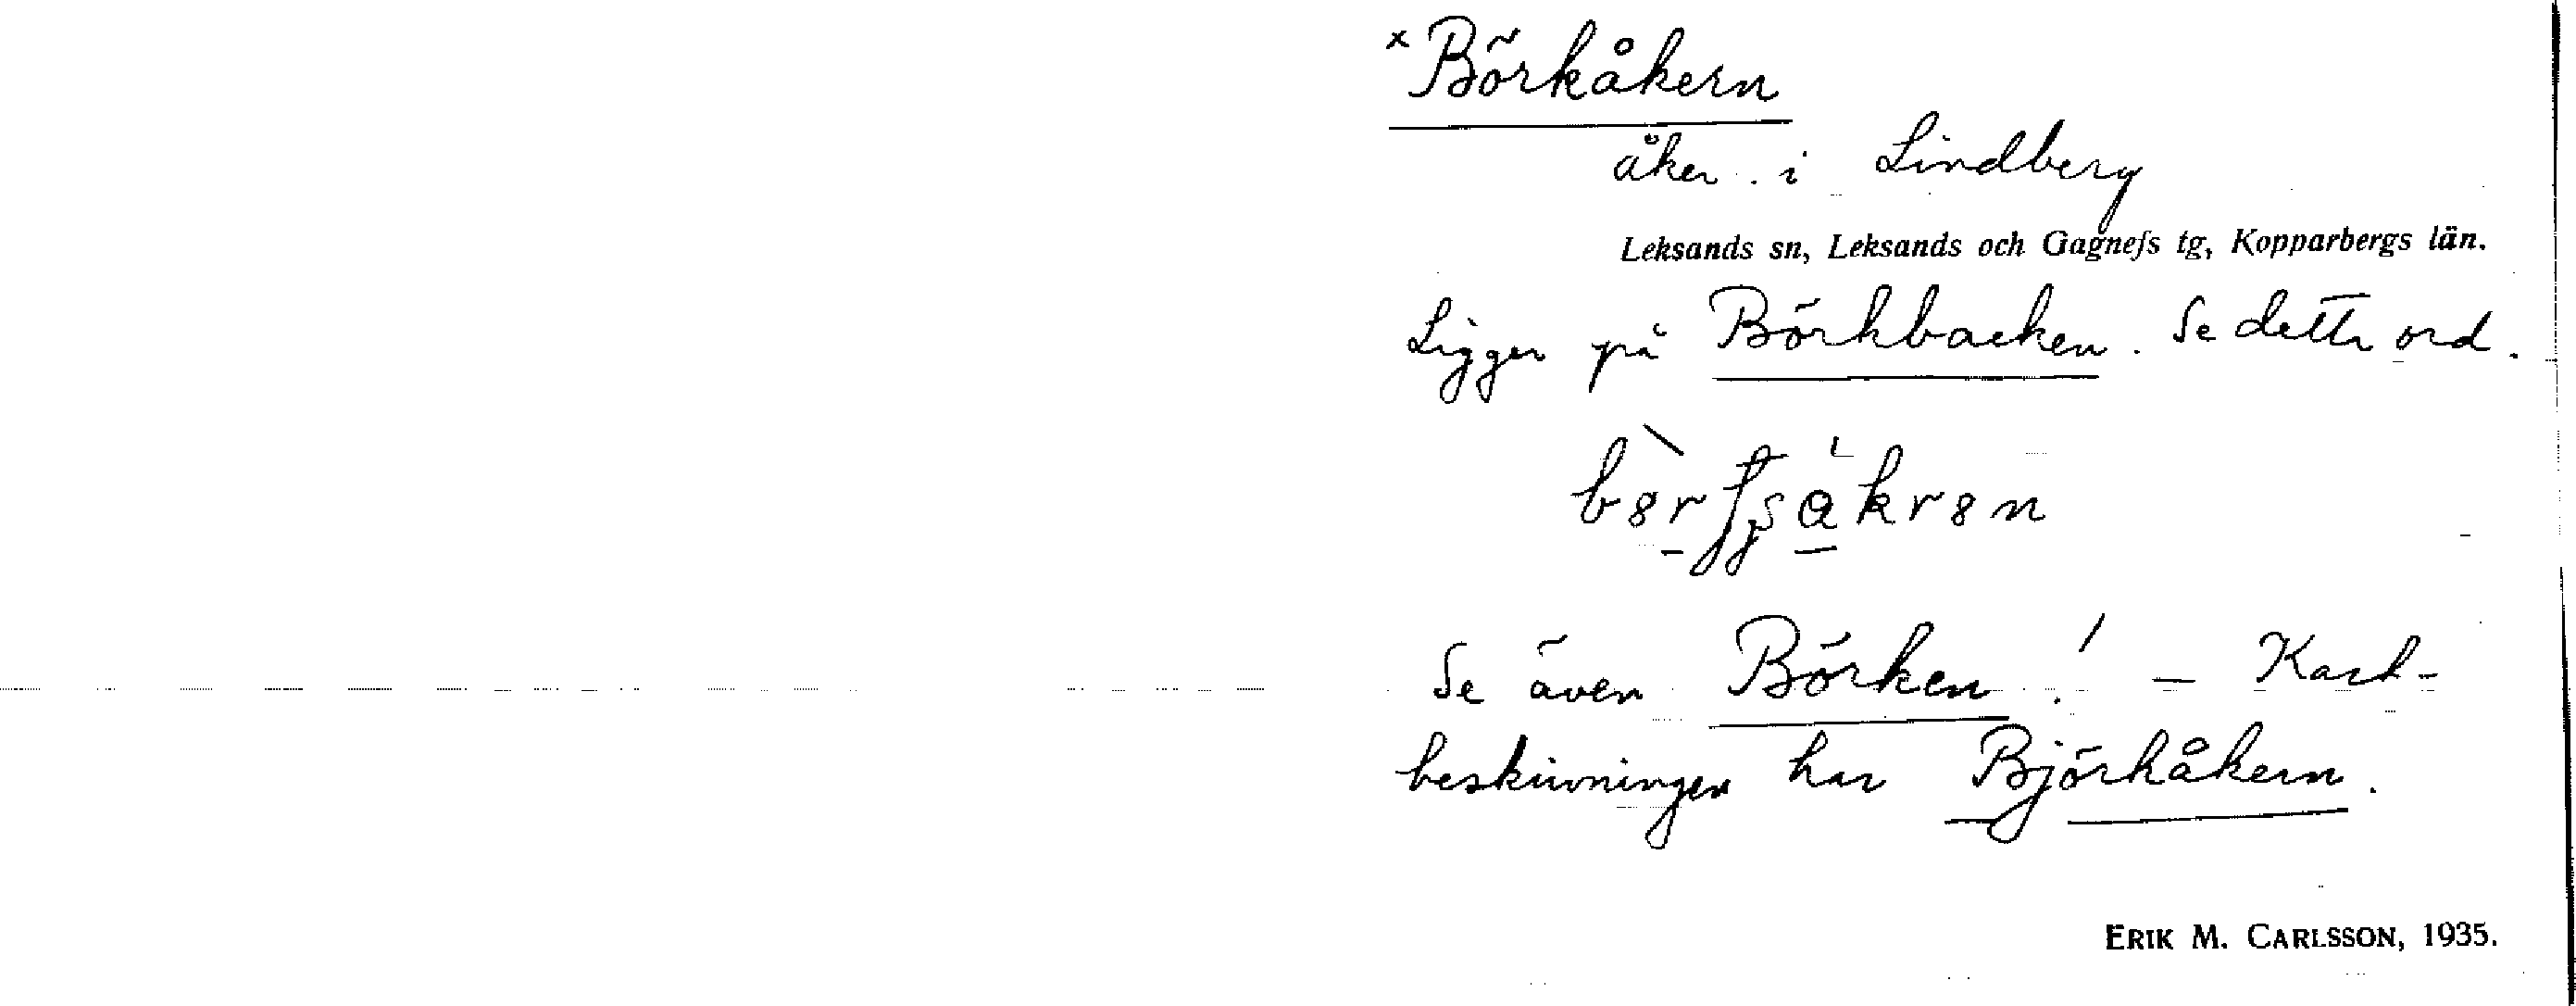 x Börkåkern
åker i Lindberg
Leksands sn, Leksands och Gagnefs tg, Kopparbergs län.
Ligger på Börkbacken. Se detta ord.
Se även Börken! – Kart-
beskrivningen har Björkåkern.
ERIK M. CARLSSON, 1935.